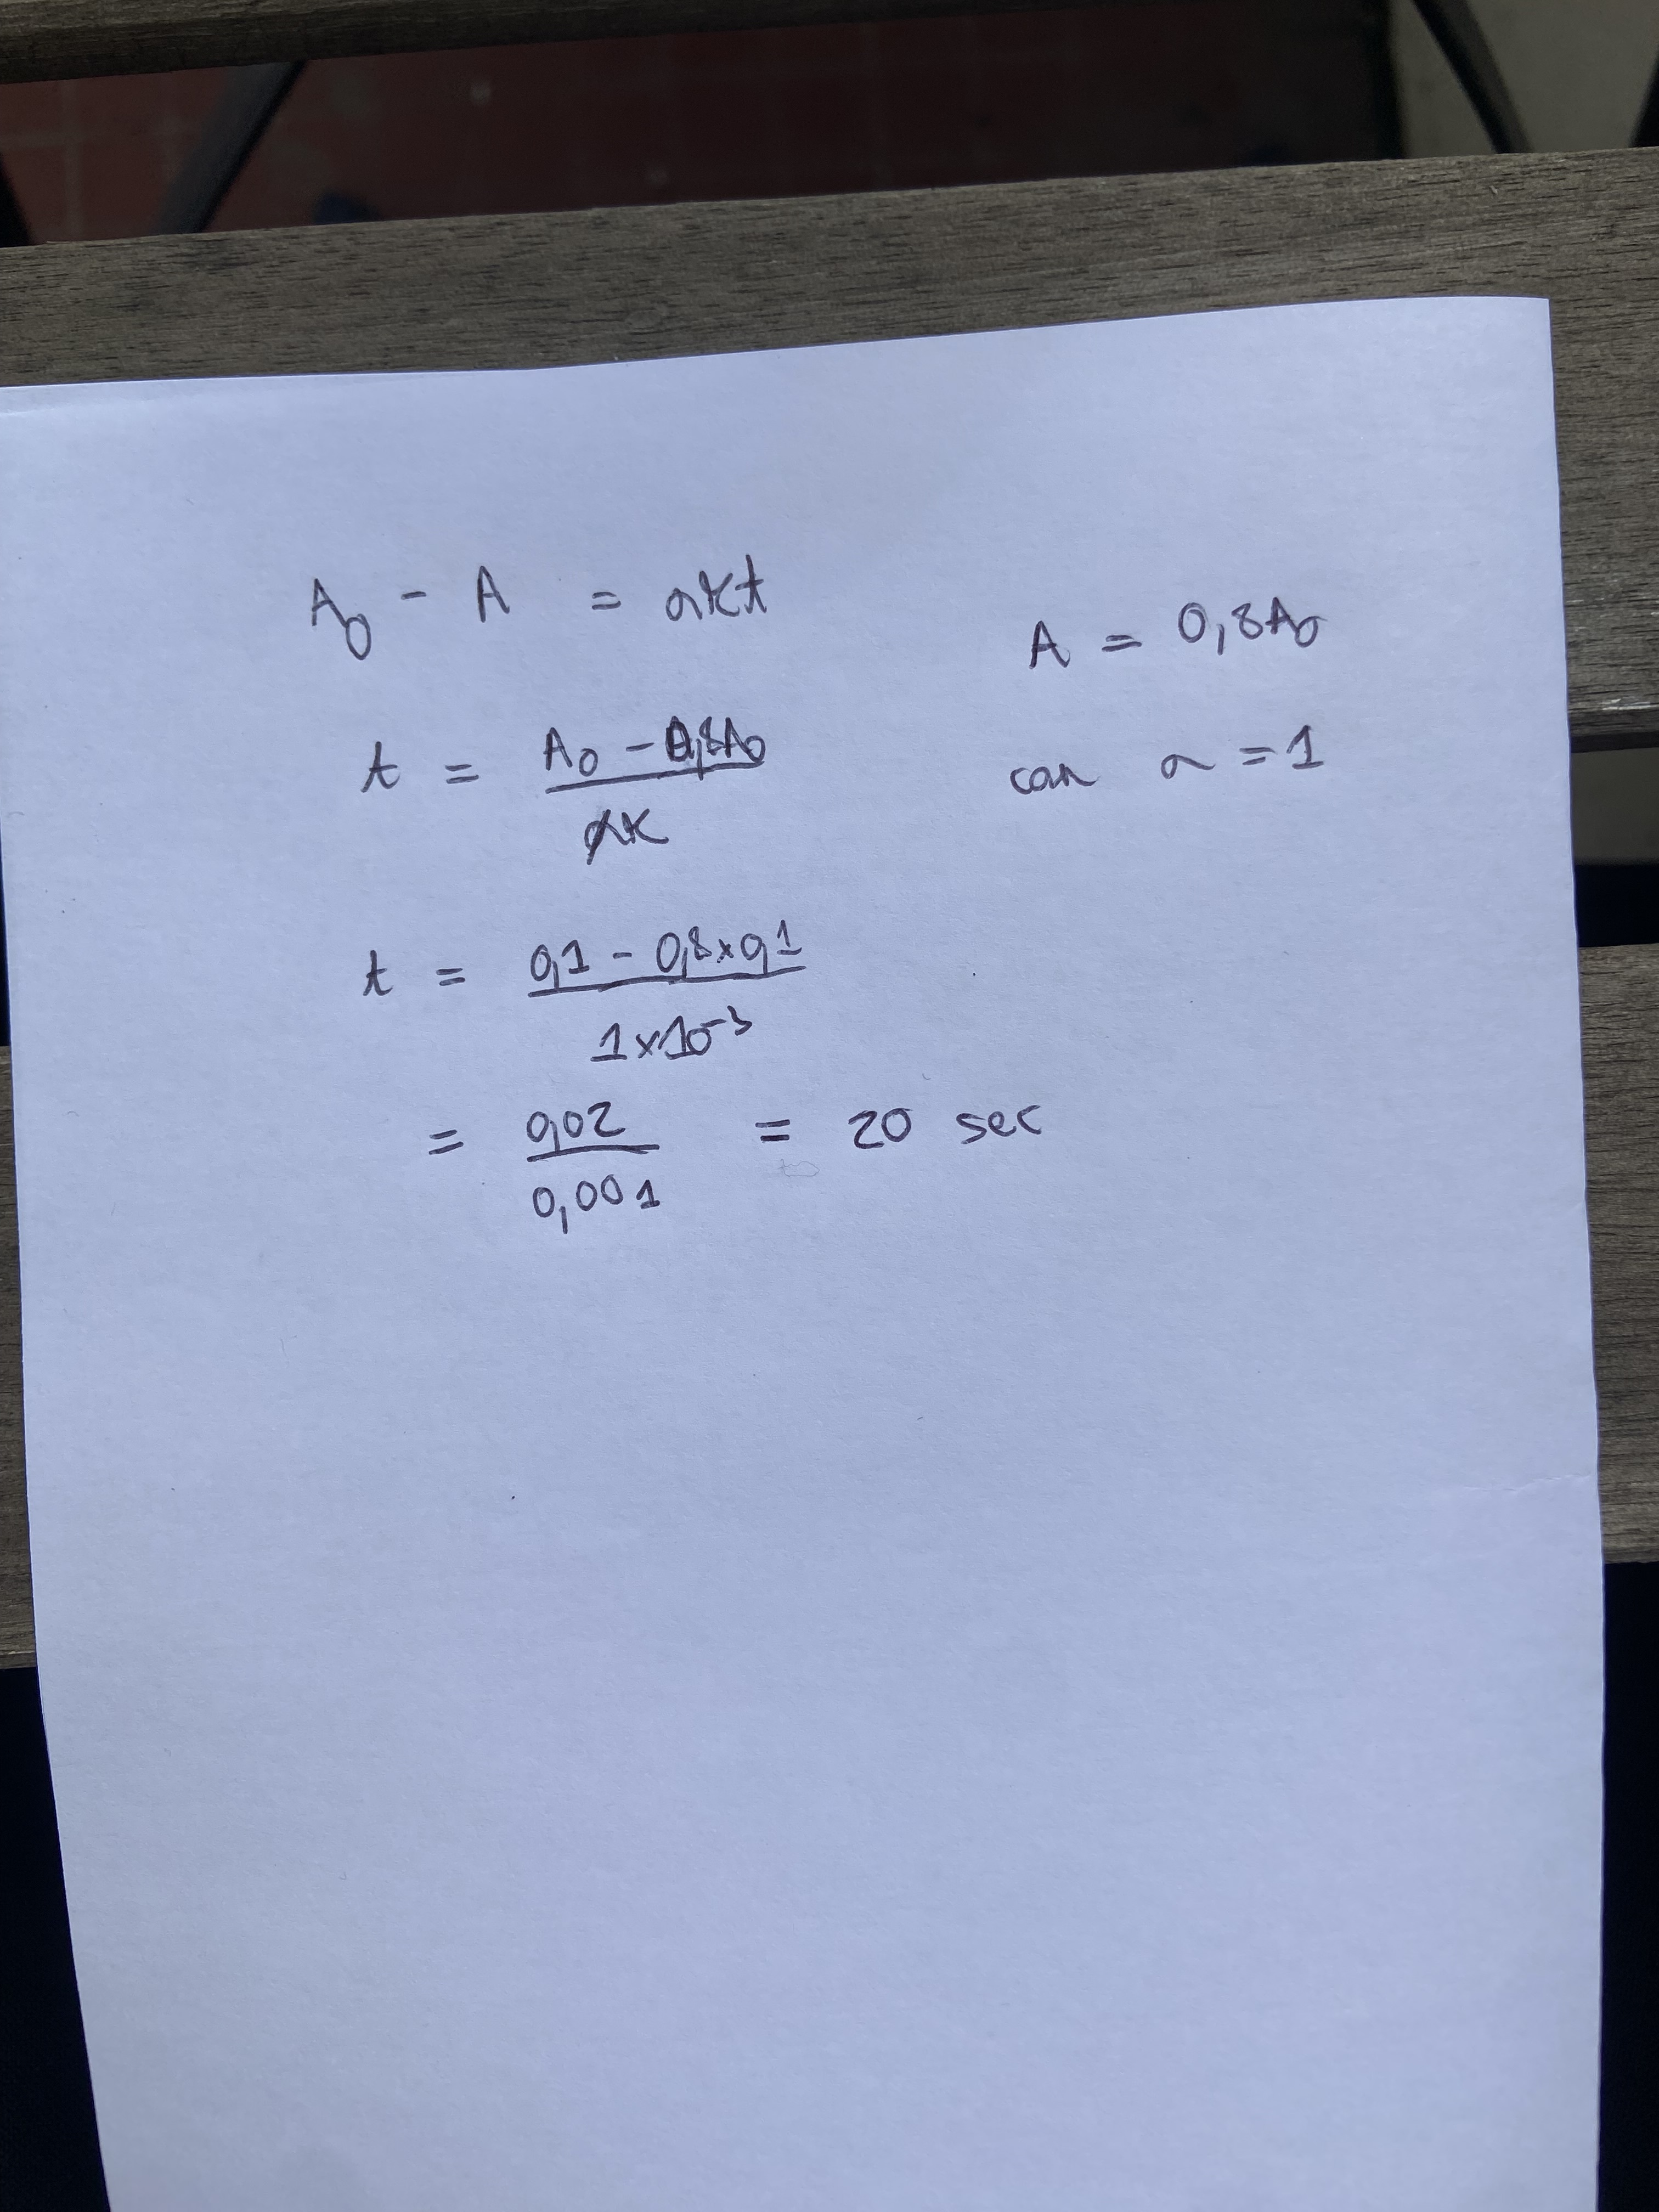 A₀ - A = akt
A = 0,8A₀
t = (A₀ - 0,8A₀) / ak
car a = 1
t = (0,1 - 0,8 x 0,1) / (1 x 10⁻³)
= 0,02 / 0,001 = 20 sec